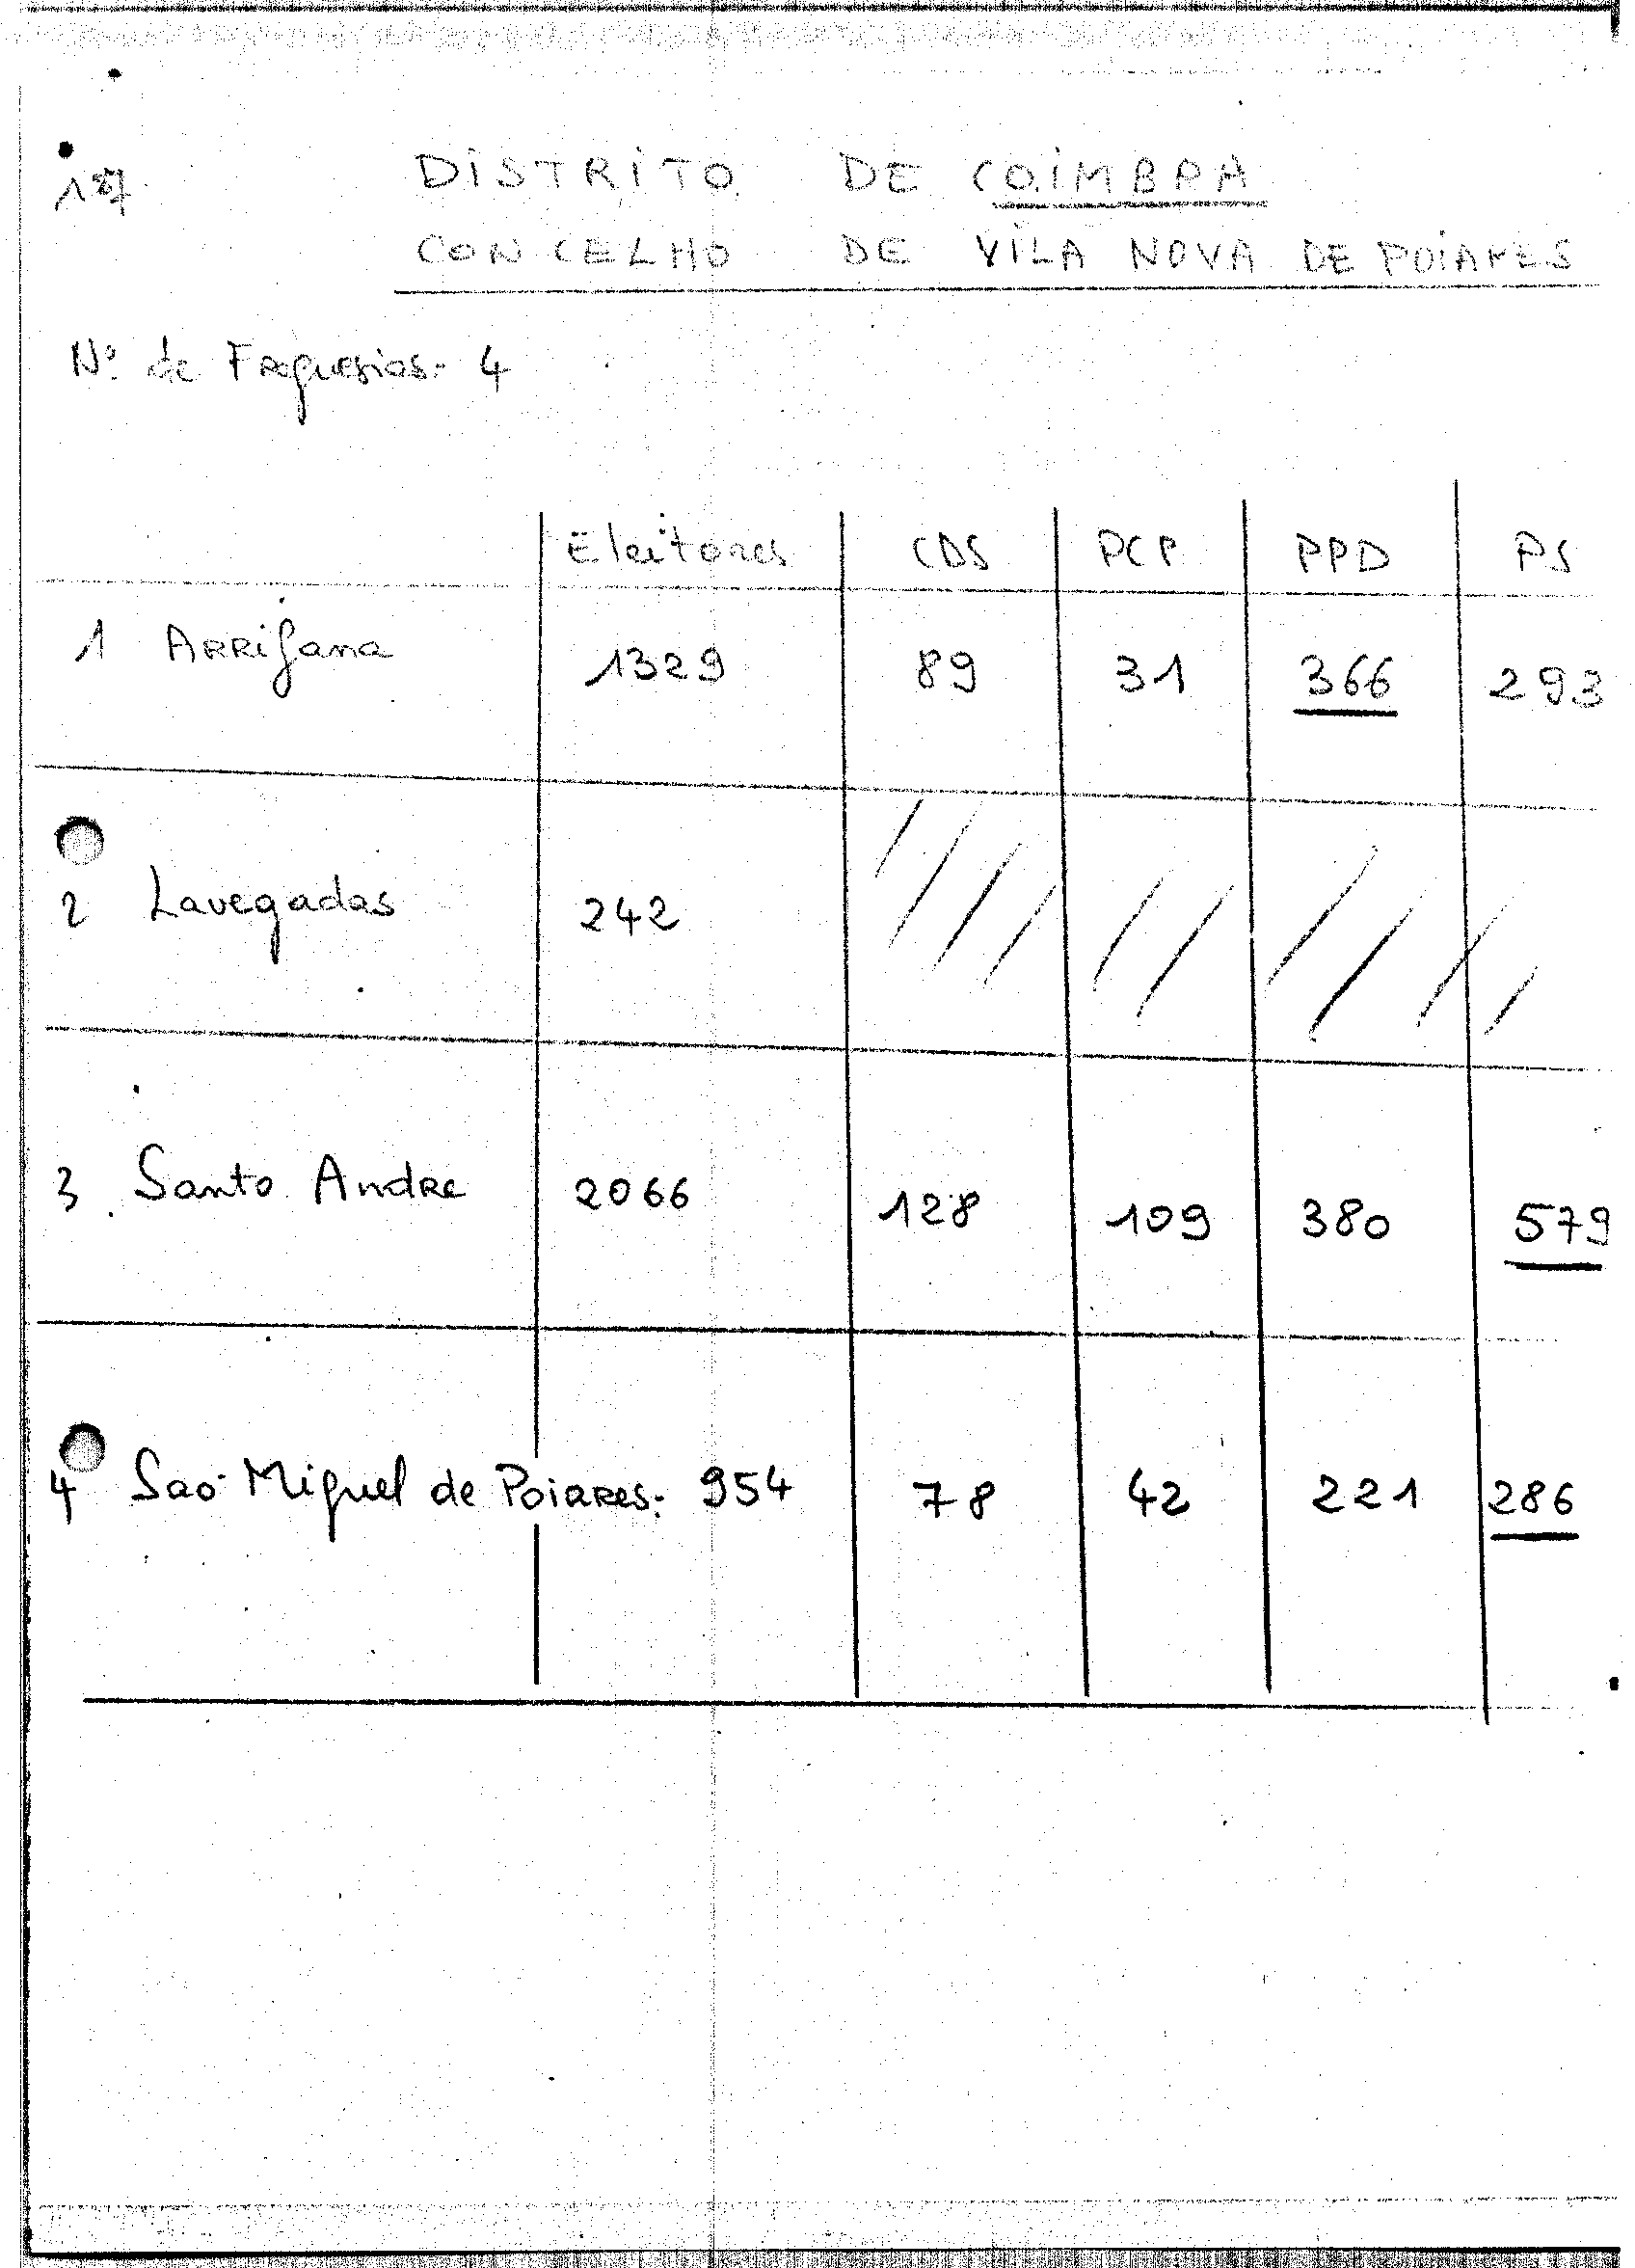 DISTRITO DE COIMBRA
CONCELHO DE VILA NOVA DE POIARES
Nº de Freguesias - 4
Eleitores CDS PCP PPD PS
1 Arrifana 1329 89 31 366 293
2 Lavegadas 242
3 Santo Andre 2066 128 109 380 579
4 Sao Miguel de Poiares. 954 78 42 221 286